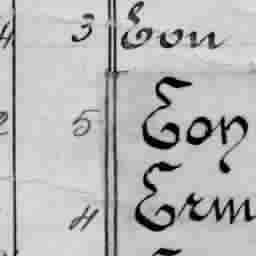 4 3 Eon
2 5 Eon
4 Erm